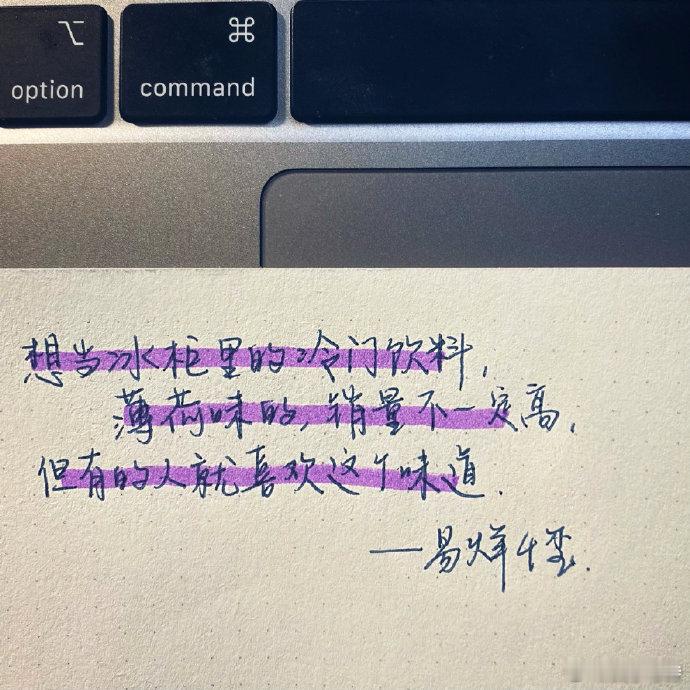 ⌥ ⌘
option command
想当冰柜里的冷门饮料,
薄荷味的,销量不一定高,
但有的人就喜欢这个味道.
—易烊千玺.